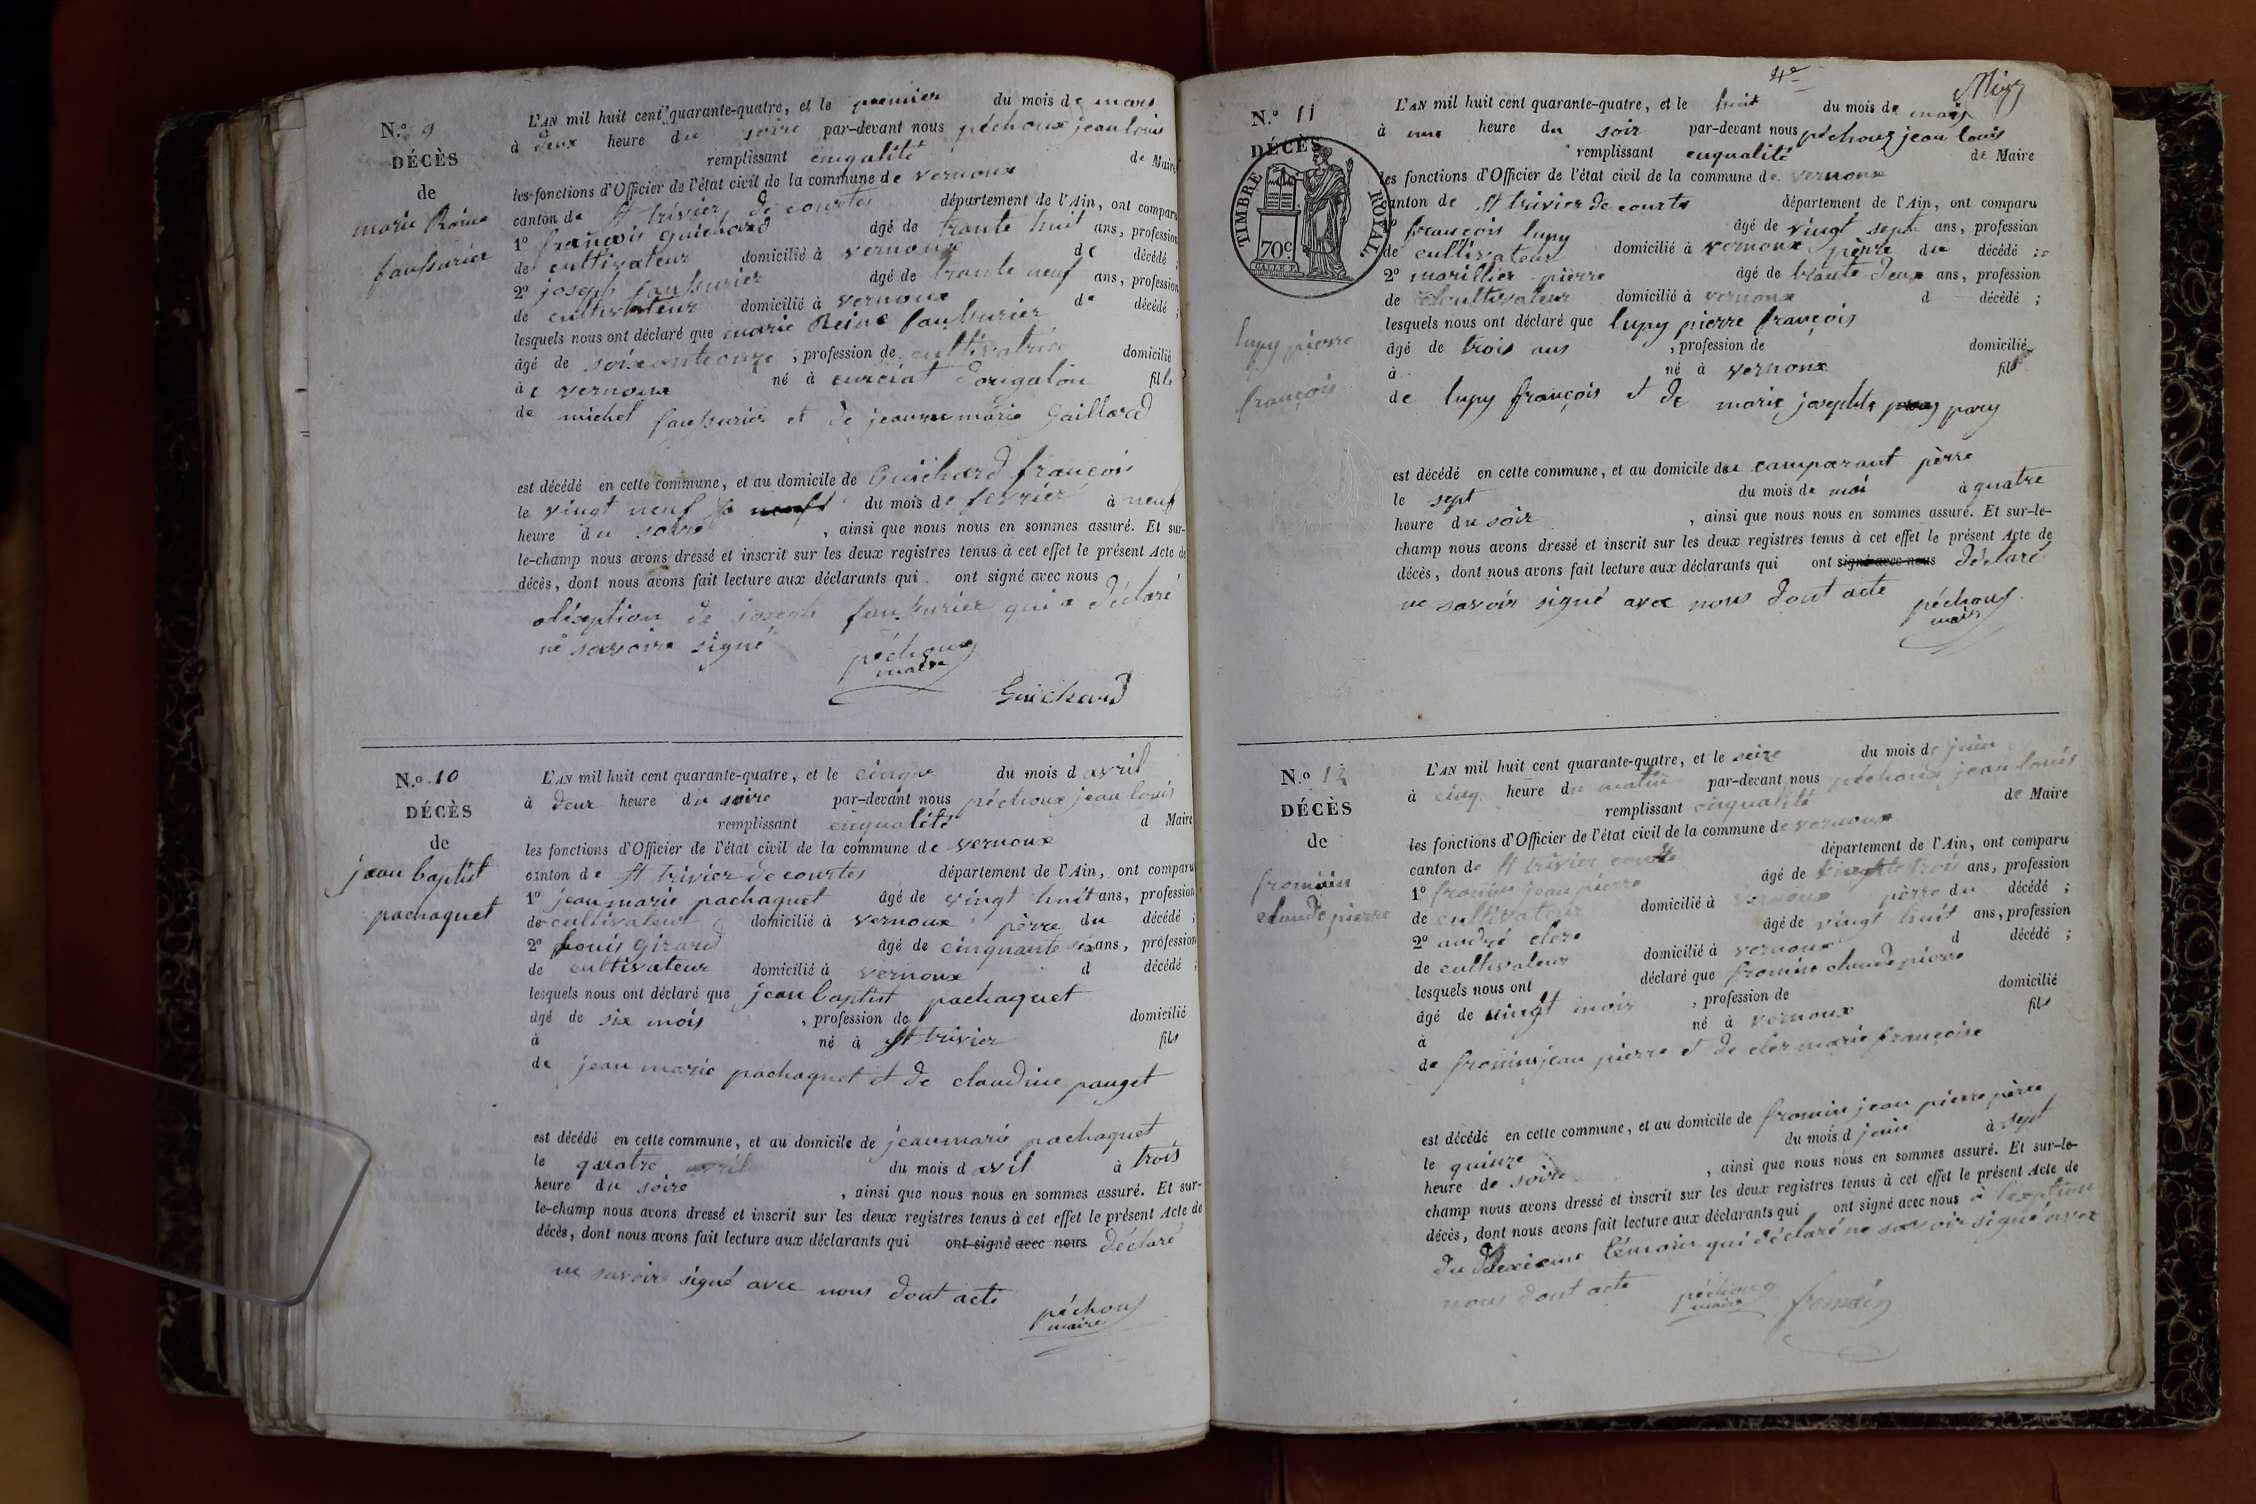 N.º 9
DÉCÈS
de
marie Reine
fausurier
L'AN mil huit cent quarante-quatre, et le premier du mois de mars
à deux heure du soire par-devant nous péchoux jean louis
remplissant enqalité de Maire
les fonctions d'Officier de l'état civil de la commune de vernoux
canton de St trivier de courtes département de l'Ain, ont comparu
1º françois guichard âgé de trante huit ans, profession
de cultivateur domicilié à vernoux de décédé ;
2º joseph âgé de trante neuf ans, profession
de cultivateur domicilié à vernoux de décédé ;
lesquels nous ont déclaré que marie Reine
âgé de soixanteonze, profession de cultivatrice domicilié
à vernoux né à curciat dongalon fille
de michel et de jeanne marie Gaillard
est décédé en cette commune, et au domicile de Guichard françois
le vingt neuf du mois de fevrier à neuf
heure du soire, ainsi que nous nous en sommes assuré. Et sur-
le-champ nous avons dressé et inscrit sur les deux registres tenus à cet effet le présent Acte de
décès, dont nous avons fait lecture aux déclarants qui ont signé avec nous
de joseph qui a déclaré
ne savoire signé
péchoux
maire
Guichard
N.º 10
DÉCÈS
de
jean baptist
pachaquet
L'AN mil huit cent quarante-quatre, et le cinque du mois d avril
à deux heure du soire par-devant nous péchoux jean louis
remplissant enqualité d Maire
les fonctions d'Officier de l'état civil de la commune de vernoux
canton de St trivier de courtes département de l'Ain, ont comparu
1º jeanmarie pachaquet âgé de vingt huit ans, profession
de cultivateur domicilié à vernoux pèrre du décédé ;
2º Louis Girard âgé de cinquante six ans, profession
de cultivateur domicilié à vernoux d décédé ;
lesquels nous ont déclaré que jean baptist pachaquet
âgé de six mois, profession de domicilié
à né à St trivier fils
de jean marie pachaquet et de claudine pauget
est décédé en cette commune, et au domicile de jeanmarie pachaquet
le quatre avril du mois d avril à trois
heure du soire, ainsi que nous nous en sommes assuré. Et sur-
le-champ nous avons dressé et inscrit sur les deux registres tenus à cet effet le présent Acte de
décès, dont nous avons fait lecture aux déclarants qui ont signé avec nous déclaré
ne savoire signé avec nous dont acte
péchoux
maire
4e
N.º 11
DÉCÈS
de
TIMBRE ROYAL
70c
lupy pierre
françois
L'AN mil huit cent quarante-quatre, et le huit du mois de mai
à une heure du soir par-devant nous péchoux jean louis
remplissant enqualité de Maire
les fonctions d'Officier de l'état civil de la commune de vernoux
canton de St trivier de courts département de l'Ain, ont comparu
françois lupy âgé de vingt sept ans, profession
de cultivateur domicilié à vernoux pèrre du décédé ;
2º marillier pierre âgé de trante deux ans, profession
de cultivateur domicilié à vernoux d décédé ;
lesquels nous ont déclaré que lupy pierre françois
âgé de trois ans, profession de domicilié
à né à vernoux fils
de lupy françois et de marie josephte pary
est décédé en cette commune, et au domicile du camparant pèrre
le sept du mois de mai à quatre
heure du soir, ainsi que nous nous en sommes assuré. Et sur-le-
champ nous avons dressé et inscrit sur les deux registres tenus à cet effet le présent Acte de
décès, dont nous avons fait lecture aux déclarants qui ont signé avec nous déclaré
ne savoir signé avec nous dont acte
péchoux
maire
N.º 12
DÉCÈS
de
fromin
claude pierre
L'AN mil huit cent quarante-quatre, et le seize du mois de juin
à cinq heure du matin par-devant nous péchoux jean louis
remplissant enqualité de Maire
les fonctions d'Officier de l'état civil de la commune de vernoux
canton de St trivier courtes département de l'Ain, ont comparu
1º fromin jean pierre âgé de trois ans, profession
de cultivateur domicilié à vernoux pèrre du décédé ;
2º andré clerc âgé de vingt huit ans, profession
de cultivateur domicilié à vernoux d décédé ;
lesquels nous ont déclaré que fromin claude pierre
âgé de vingt mois, profession de domicilié
à né à vernoux fils
de fromin jean pierre et de cler marie françoise
est décédé en cette commune, et au domicile de fromin jean pierre pèrre
le quinze du mois d juin à sept
heure de soire, ainsi que nous nous en sommes assuré. Et sur-le-
champ nous avons dressé et inscrit sur les deux registres tenus à cet effet le présent Acte de
décès, dont nous avons fait lecture aux déclarants qui ont signé avec nous à l'exption
du témoin qui déclaré ne savoir signé avec
nous dont acte
péchoux
maire
fromin